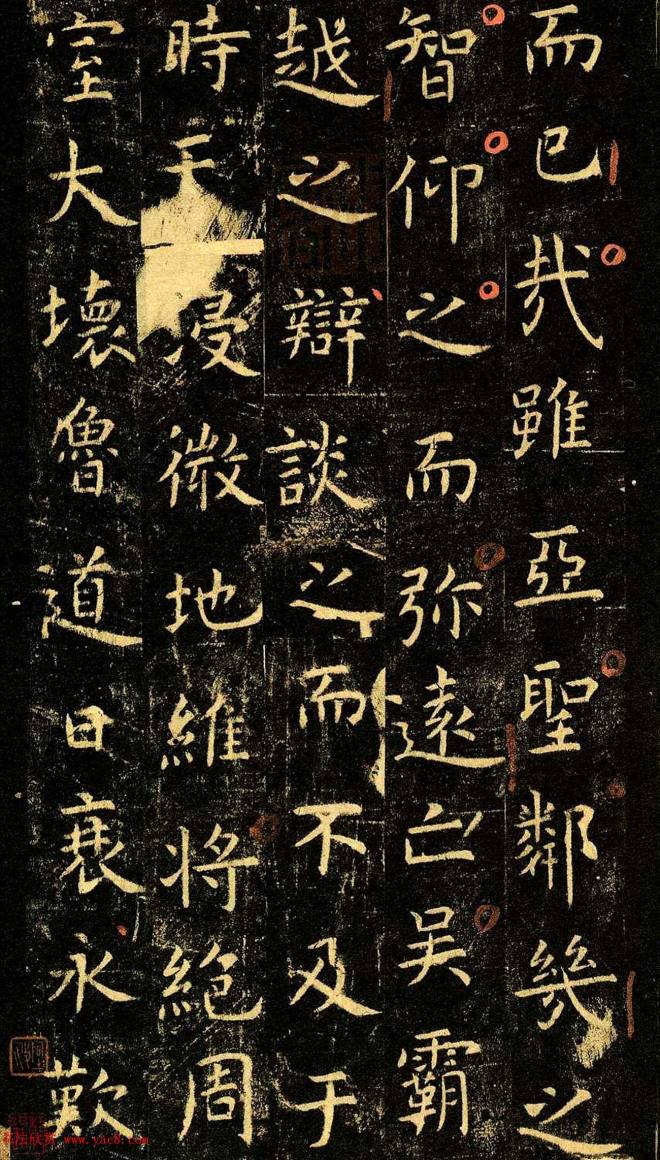 而已哉雖亞聖鄰幾之
智仰之而弥遠亡吳霸
越之辯談之而不及于
時天浸微地維将絶周
室大壞魯道日衰永歎
www.yac8.com